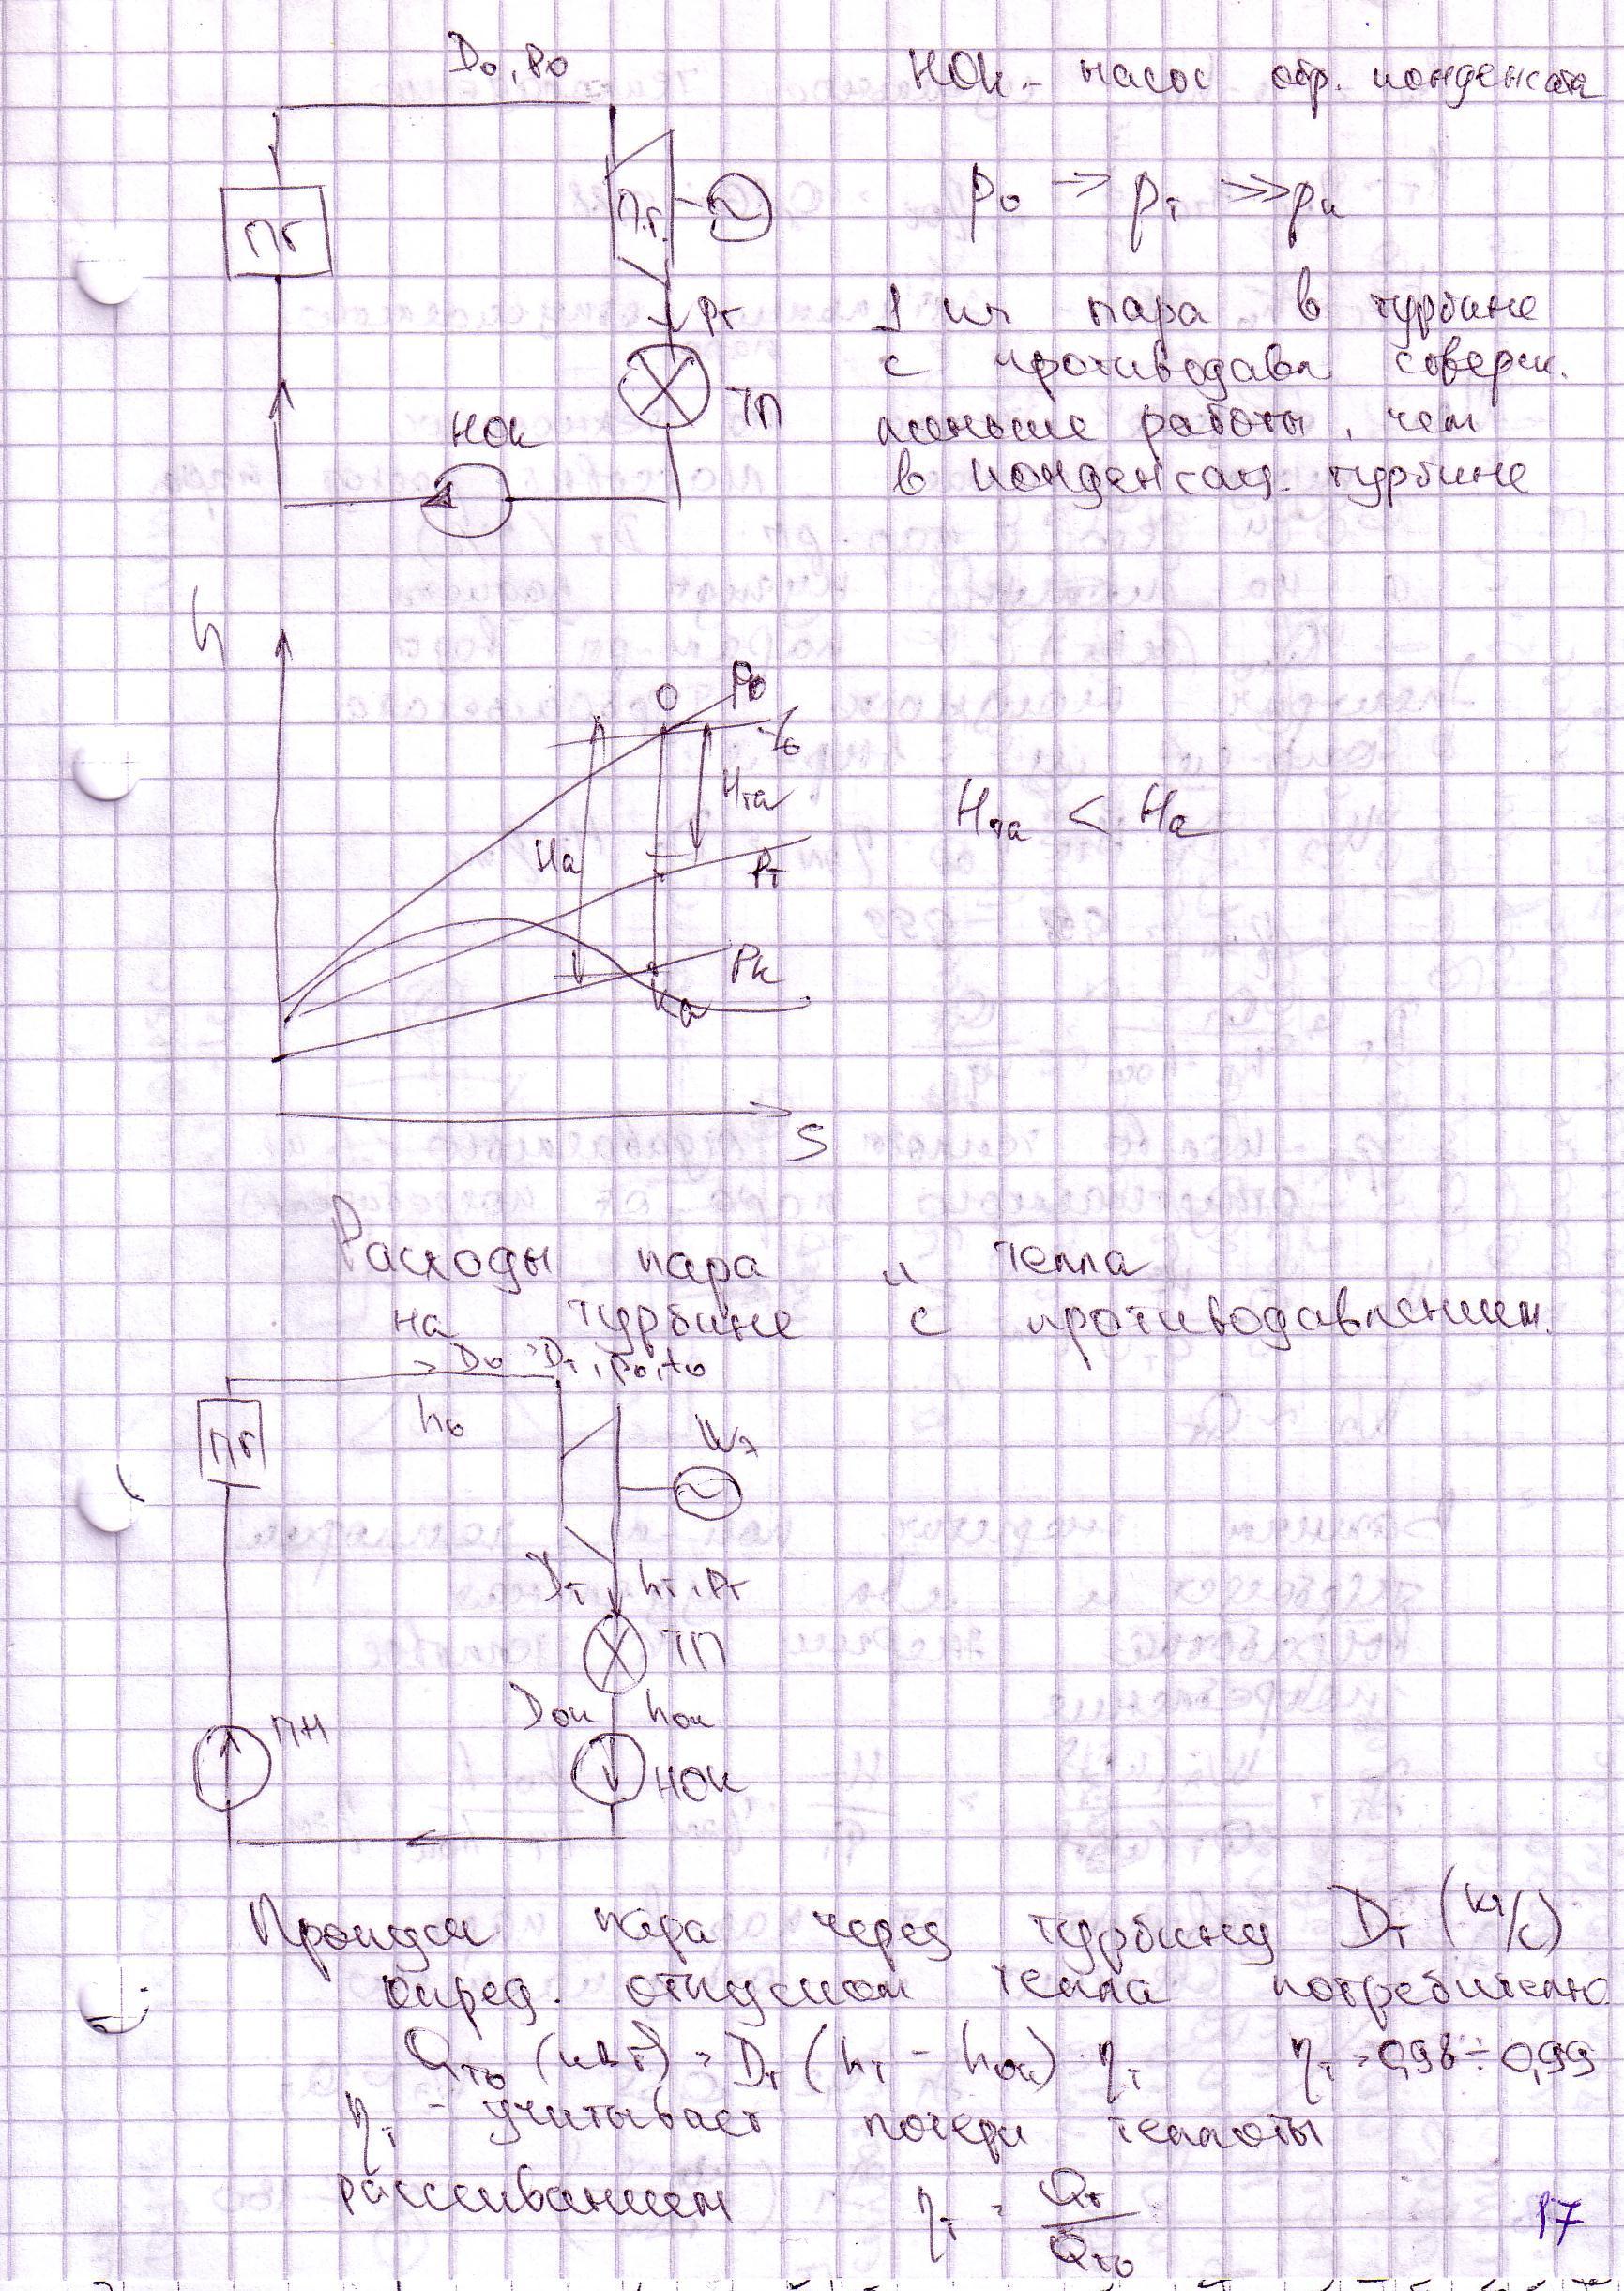 D₀, P₀
НОК - насос обр. конденсата
ПГ
П.Т.
P₀ → Pт ≫ Pк
Pт
ТП
НОК
1 кг пара в турбине
с противодавл соверш.
меньше работы, чем
в конденсац. турбине
h
O
P₀
t₀
Hта
Hа
Pт
Pк
Kа
S
Hта < Hа
Расходы пара и тепла
на турбине с противодавлением.
D₀ = Dт, P₀, t₀
h₀
ПГ
Wэ
Dт hт, Pт
ТП
Dок hок
ПН
НОК
Пропуск пара через турбину Dт (кг/с)
опред. отпуском тепла потребителю
Qто (кВт) = Dт (hт - hок) · ηт ηт = 0,98 ÷ 0,99
ηт - учитывает потери теплоты
рассеиванием ηт = Qт / Qто
17